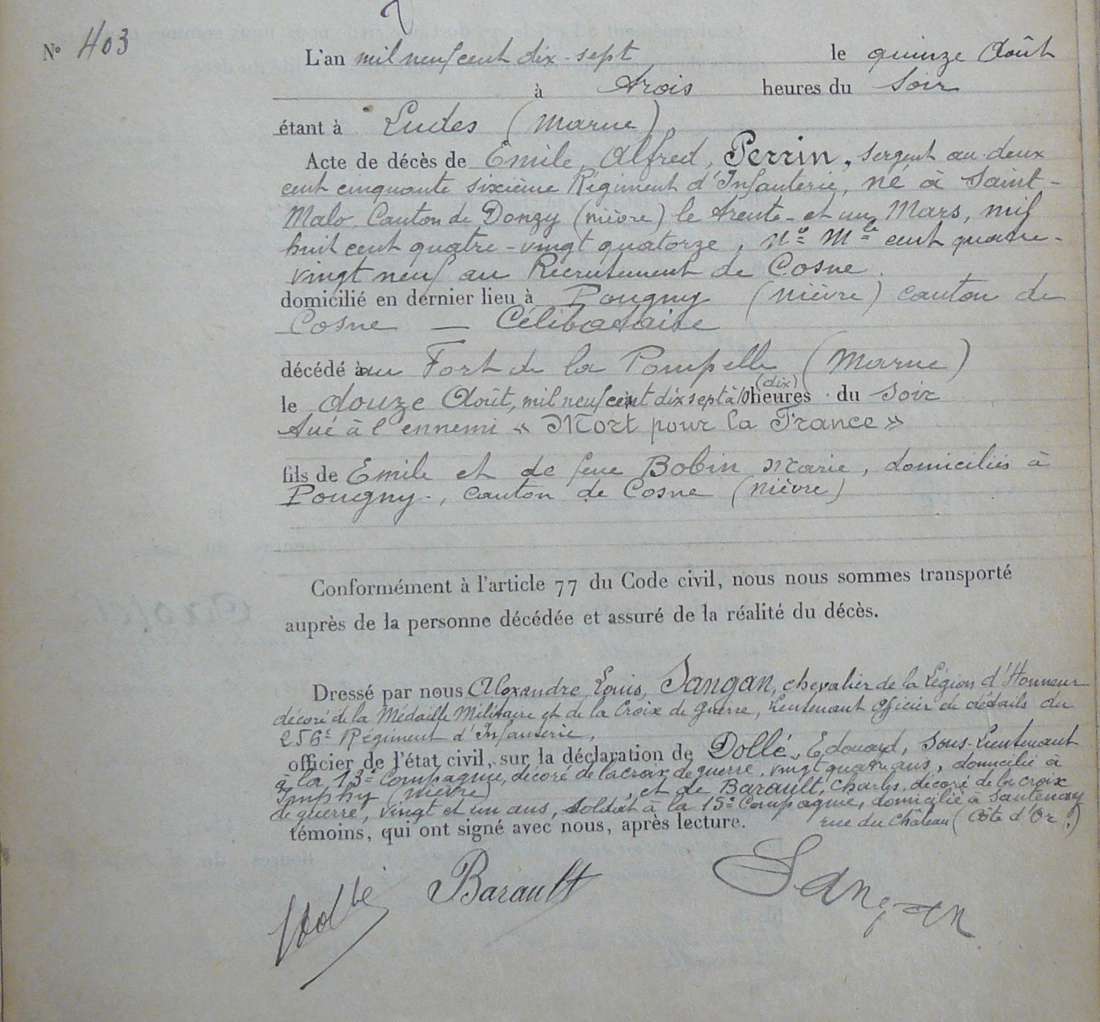 N° 403
L'an mil neuf cent dix-sept le quinze Août
à trois heures du Soir
étant à Ludes (Marne)
Acte de décès de Emile, Alfred, Perrin, sergent au deux
cent cinquante sixième Régiment d'Infanterie, né à Saint-
Malo, Canton de Donzy (Nièvre) le trente-et un Mars, mil
huit cent quatre-vingt quatorze, N° Mle cent quatre-
vingt neuf au Recrutement de Cosne.
domicilié en dernier lieu à Pougny (Nièvre) canton de
Cosne — Célibataire
décédé au Fort de la Pompelle (Marne)
le douze Août, mil neuf cent dix sept à 10 (dix) heures du Soir
tué à l'ennemi « Mort pour la France »
fils de Emile et de feue Bobin Marie, domiciliés à
Pougny-, canton de Cosne (Nièvre)
Conformément à l'article 77 du Code civil, nous nous sommes transporté
auprès de la personne décédée et assuré de la réalité du décès.
Dressé par nous Alexandre, Louis, Sangan, chevalier de la Légion d'Honneur
décoré de la Médaille Militaire et de la Croix de Guerre, Lieutenant Officier de détails du
256e Régiment d'Infanterie,
officier de l'état civil, sur la déclaration de Dollé, Edouard, Sous-Lieutenant
à la 13e Compagnie, décoré de la croix de guerre, vingt quatre ans, domicilié à
Imphy (Nièvre), et de Barault, Charles, décoré de la croix
de guerre, vingt et un ans, soldat à la 15e Compagnie, domicilié à Santenay
rue du Château (Côte d'Or)
témoins, qui ont signé avec nous, après lecture.
Dollé Barault Sangan